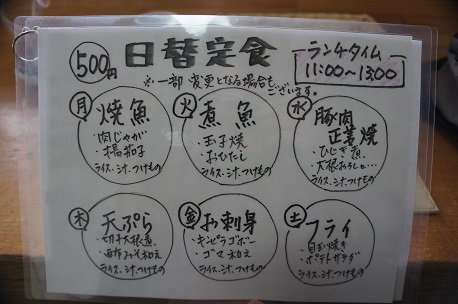 500円
日替定食
※一部変更となる場合もございます。
ランチタイム
11:00~13:00
月
焼魚
・肉じゃが
・揚茄子
ライス、汁、つけもの
火
煮魚
・玉子焼
・おひたし
ライス、汁、つけもの
水
豚肉
生姜焼
・ひじき煮
・大根おろしと…
ライス、汁、つけもの
木
天ぷら
・切干大根煮
・酢みそ和え
ライス、汁、つけもの
金
お刺身
・キンピラゴボー
・ゴマ和え
ライス、汁、つけもの
土
フライ
・目玉焼き
・ポテトサラダ
ライス、汁、つけもの